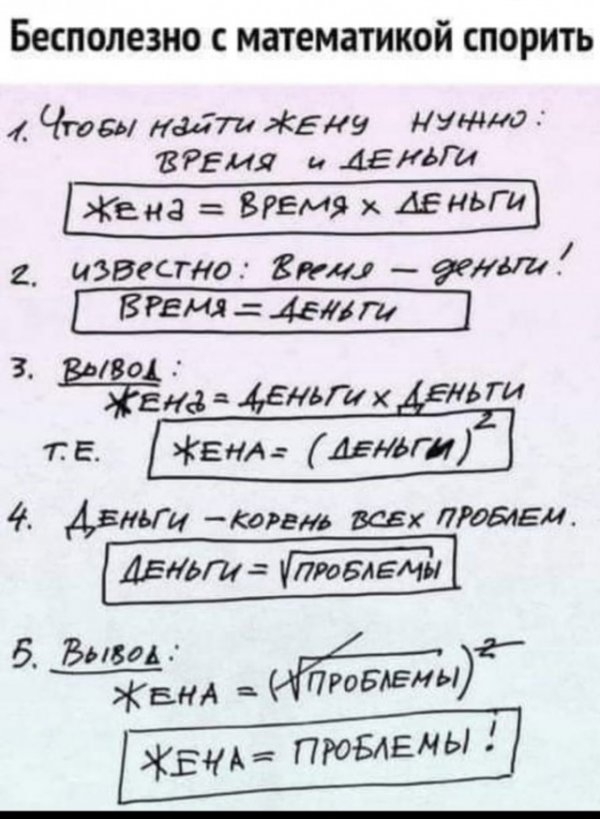 Бесполезно с математикой спорить
1. Чтобы найти жену нужно:
время и деньги
Жена = время x деньги
2. известно: Время – деньги!
время = деньги
3. Вывод:
Жена = деньги x деньги
т.е. жена = (деньги)²
4. Деньги – корень всех проблем.
деньги = √проблемы
5. Вывод:
жена = (√проблемы)²
жена = проблемы!